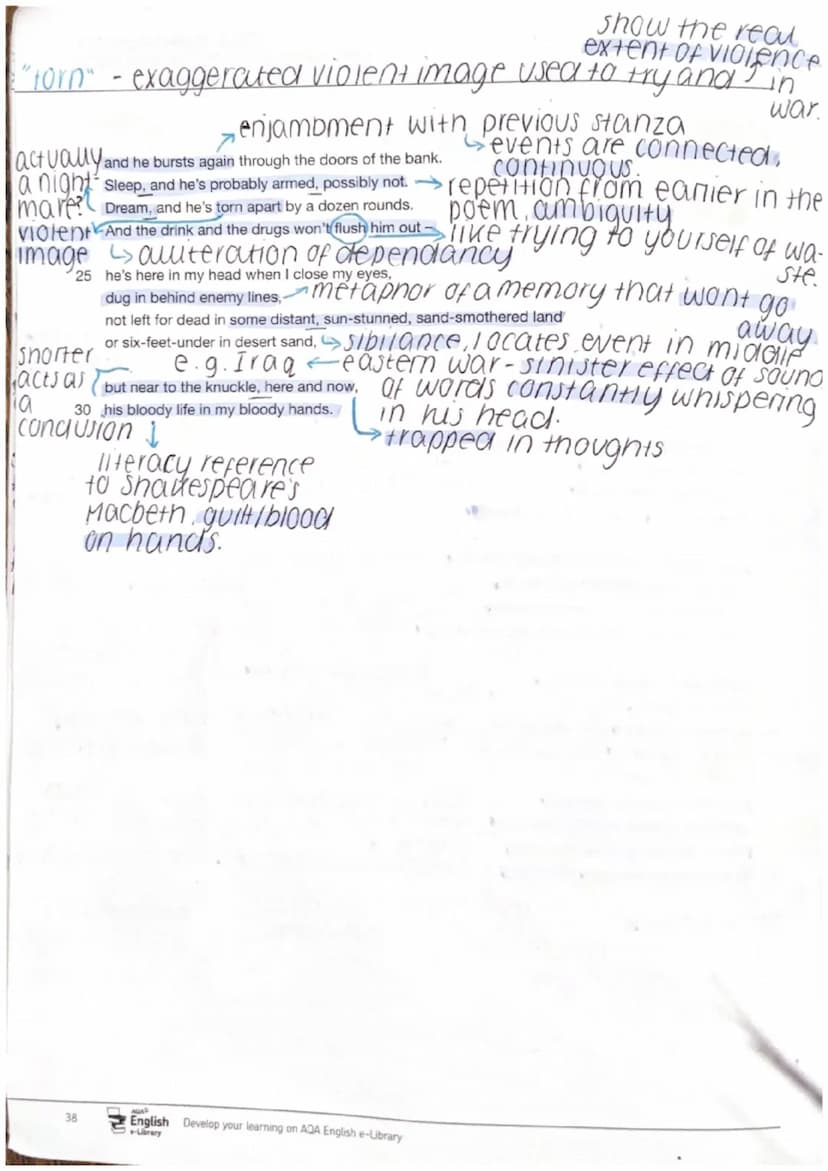 show the real
extent of violence
"torn" - exaggerated violent image used to try and ↗ in
war.
enjambment with previous stanza
↳ events are connected,
continuous.
actually
a night-
mare?
violent
image
and he bursts again through the doors of the bank.
Sleep, and he's probably armed, possibly not.
→ repetition from earlier in the
poem, ambiguity
Dream, and he's torn apart by a dozen rounds.
And the drink and the drugs won't flush him out –
→ like trying to yourself of wa-
ste.
↳ alliteration of dependancy
25 he's here in my head when I close my eyes,
dug in behind enemy lines,
→ metaphor of a memory that wont go
away
not left for dead in some distant, sun-stunned, sand-smothered land
or six-feet-under in desert sand,
↳ sibilance, locates event in middle
e.g. Iraq ← eastern war - sinister effect of sound
of words constantly whispering
in his head.
shorter
acts as
a
conclusion
but near to the knuckle, here and now,
30 his bloody life in my bloody hands.
→ trapped in thoughts
literacy reference
to Shakespeare's
Macbeth, guilt/blood
on hands.
38
AQA
English
e-Library
Develop your learning on AQA English e-Library